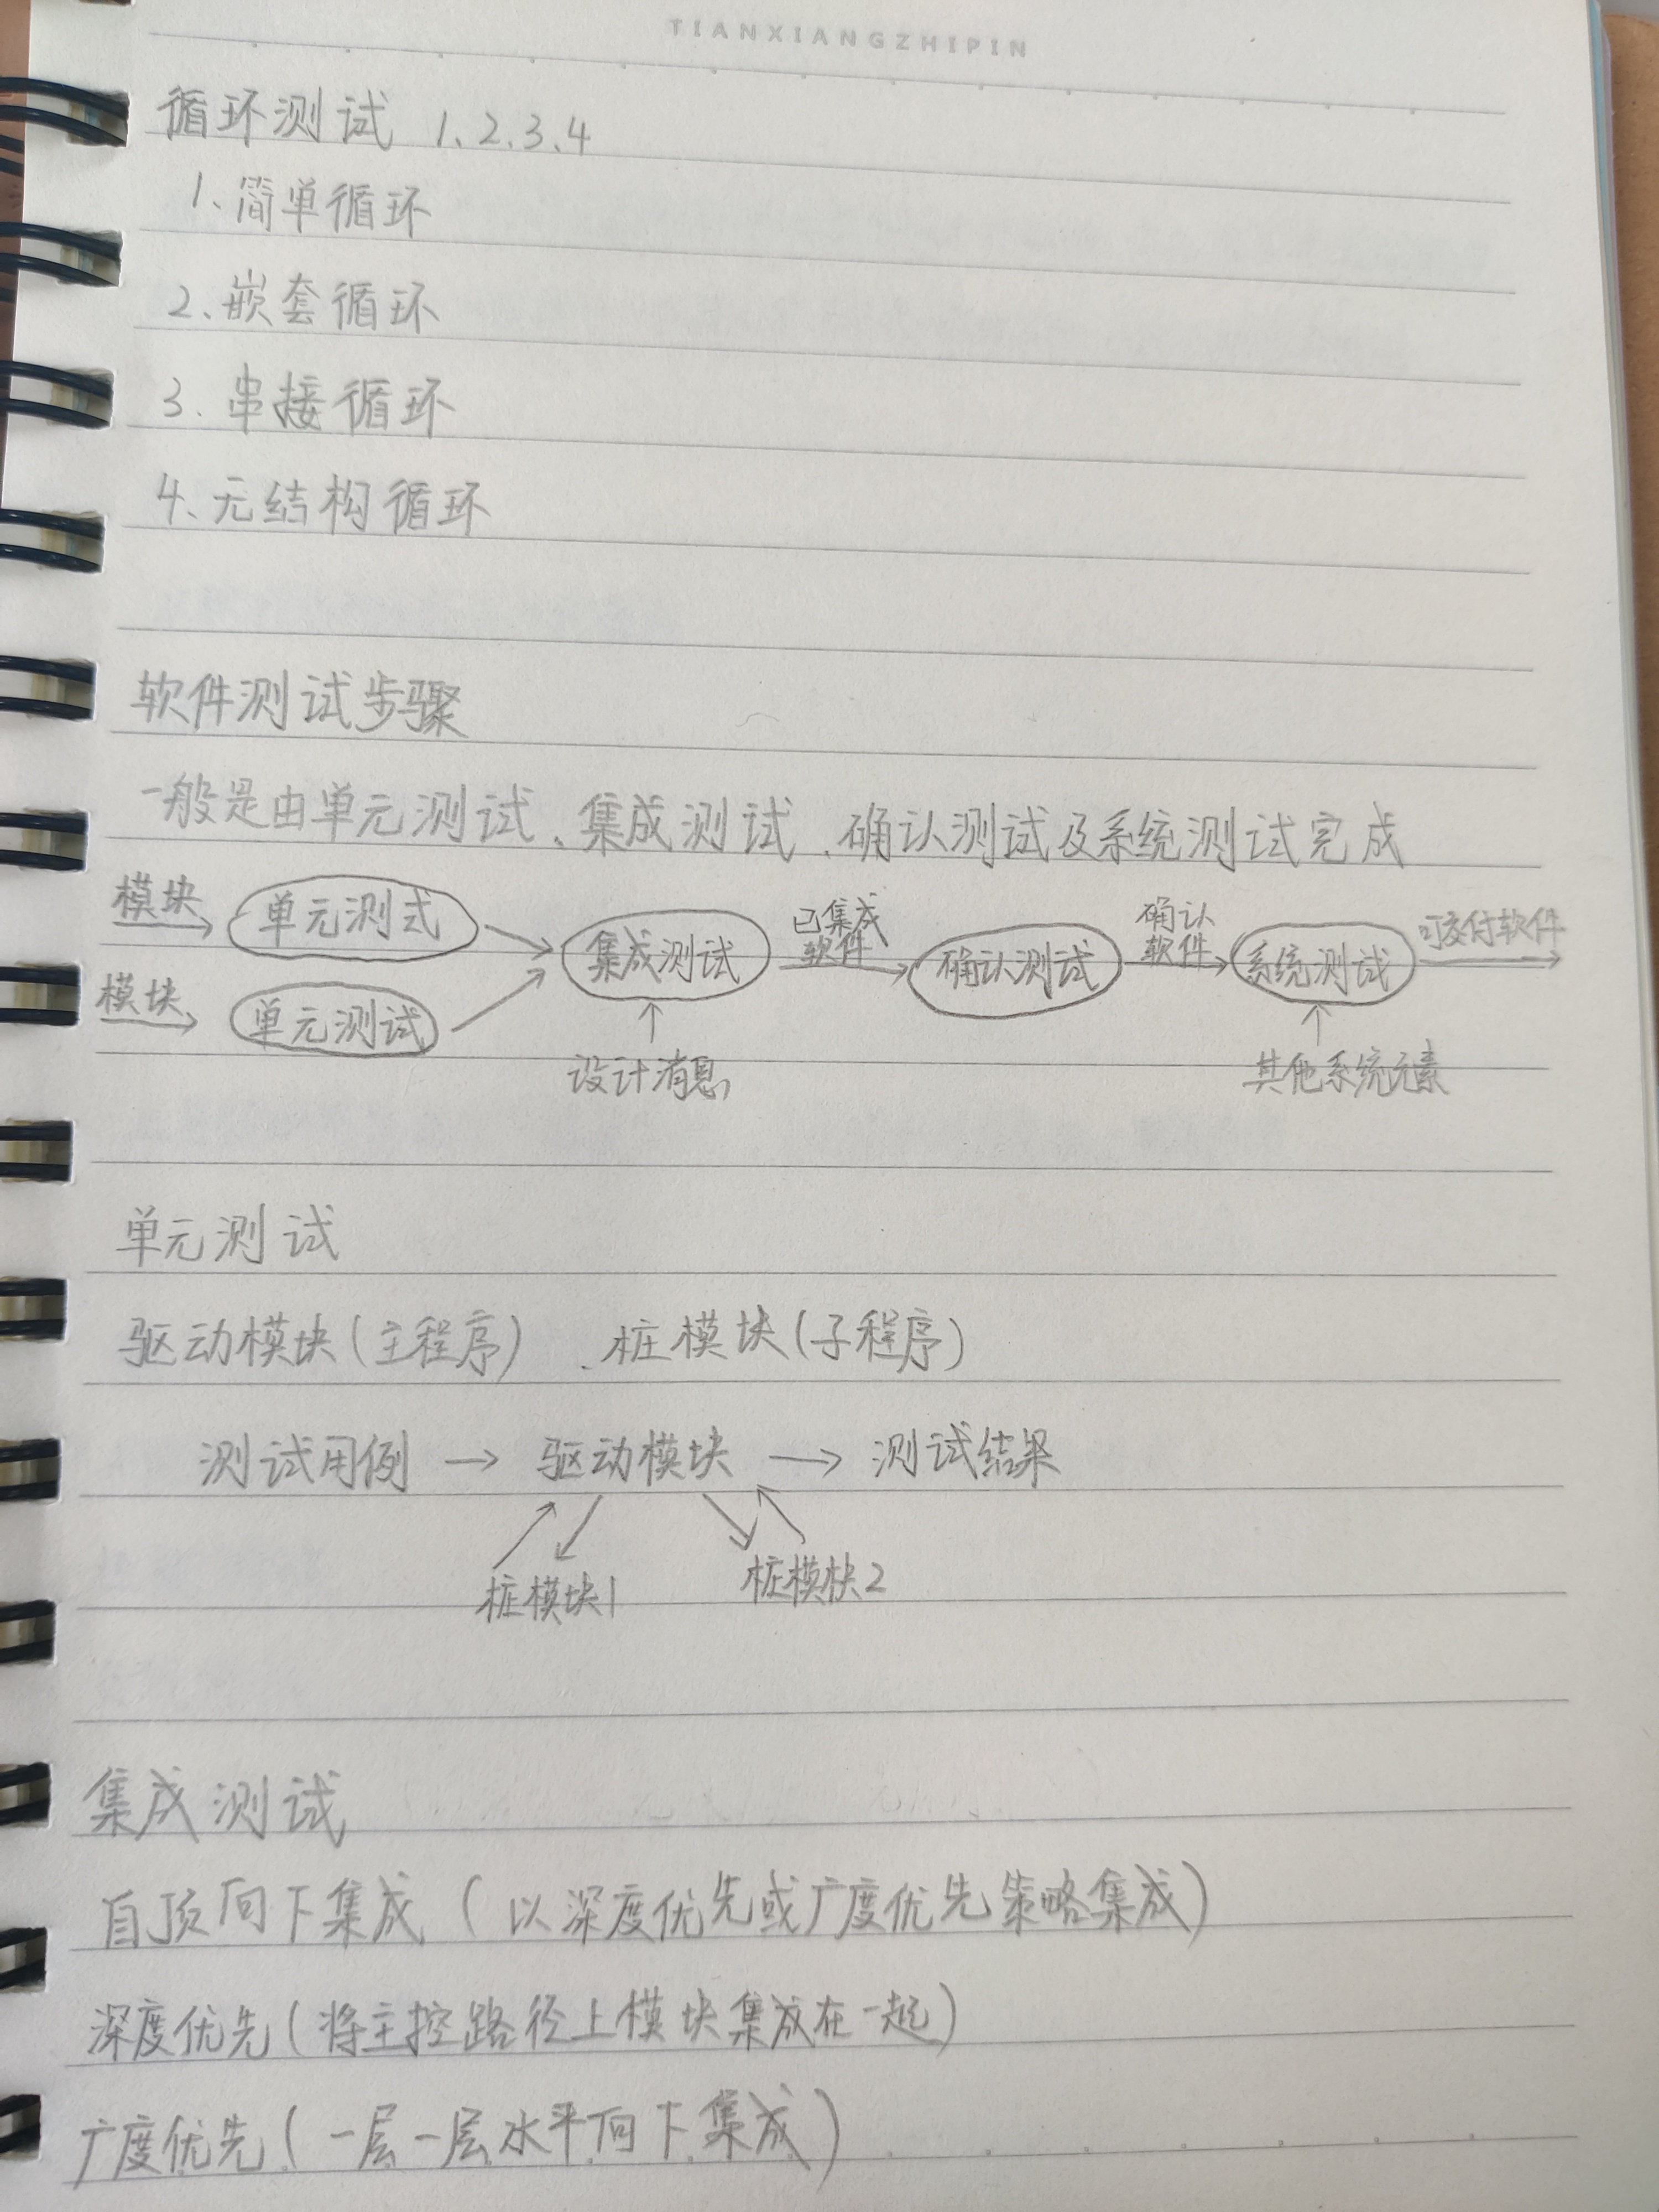 TIANXIANGZHIPIN
循环测试 1、2、3、4
1、简单循环
2、嵌套循环
3、串接循环
4、无结构循环
软件测试步骤
一般是由单元测试、集成测试、确认测试及系统测试完成
模块 单元测式 集成测试 已集成软件 确认测试 确认软件 系统测试 可交付软件
模块 单元测试
设计消息 其他系统元素
单元测试
驱动模块(主程序) 、桩模块(子程序)
测试用例 → 驱动模块 → 测试结果
桩模块1 桩模块2
集成测试
自顶向下集成 (以深度优先或广度优先策略集成)
深度优先(将主控路径上模块集成在一起)
广度优先(一层一层水平向下集成)